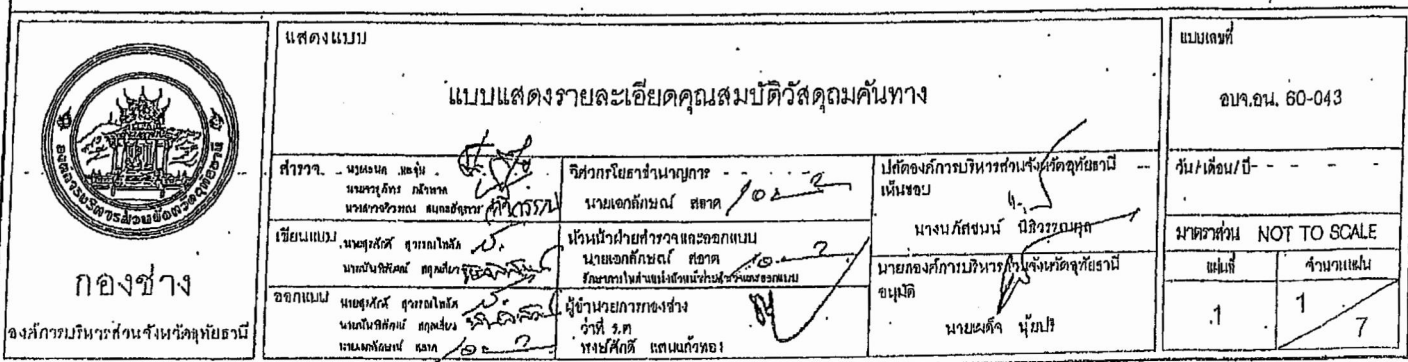 องค์การบริหารส่วนจังหวัดอุทัยธานี
กองช่าง
องค์การบริหารส่วนจังหวัดอุทัยธานี
แสดงแบบ
แบบแสดงรายละเอียดคุณสมบัติวัสดุถมคันทาง
สำรวจ
เขียนแบบ
นายสุรศักดิ์
ออกแบบ
นายสุรศักดิ์
นายเอกลักษณ์ สอาด
วิศวกรโยธาชำนาญการ
นายเอกลักษณ์ สอาด
หัวหน้าฝ่ายสำรวจและออกแบบ
นายเอกลักษณ์ สอาด
รักษาการในตำแหน่งหัวหน้าฝ่ายสำรวจและออกแบบ
ผู้อำนวยการกองช่าง
ว่าที่ ร.ต
พงษ์ศักดิ์ แตนแก้วทอง
ปลัดองค์การบริหารส่วนจังหวัดอุทัยธานี
เห็นชอบ
นางนภัสชนน์
นายกองค์การบริหารส่วนจังหวัดอุทัยธานี
อนุมัติ
นายเผด็จ นุ้ยปรี
แบบเลขที่
อบจ.อน. 60-043
วัน/เดือน/ปี
มาตราส่วน NOT TO SCALE
แผ่นที่ จำนวนแผ่น
1 1/7